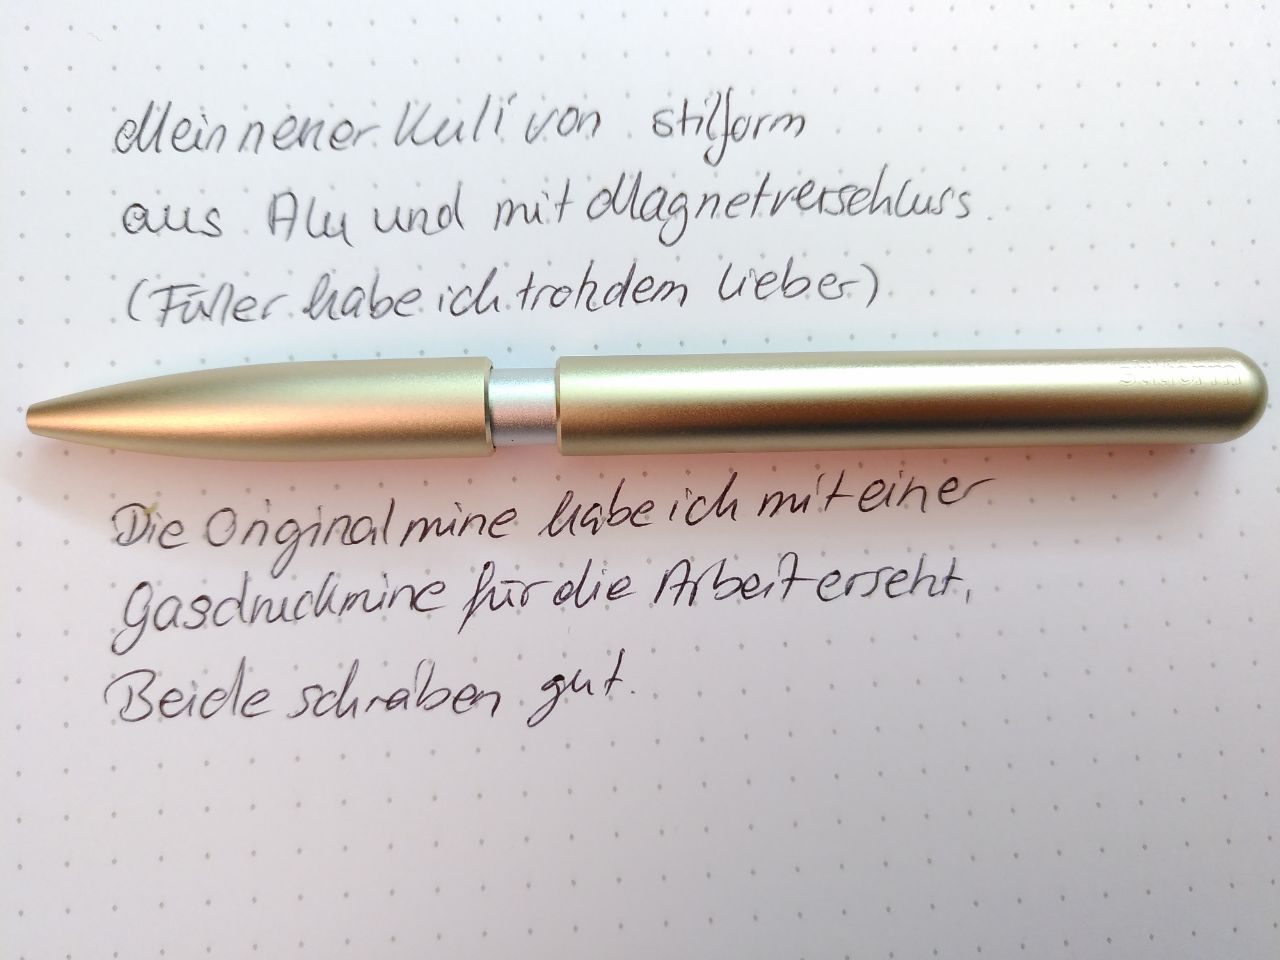 Mein neuer Kuli von stilform
aus Alu und mit Magnetverschluss.
(Füller habe ich trotzdem lieber)
stilform
Die Originalmine habe ich mit einer
Gasdruckmine für die Arbeit ersetzt.
Beide schreiben gut.